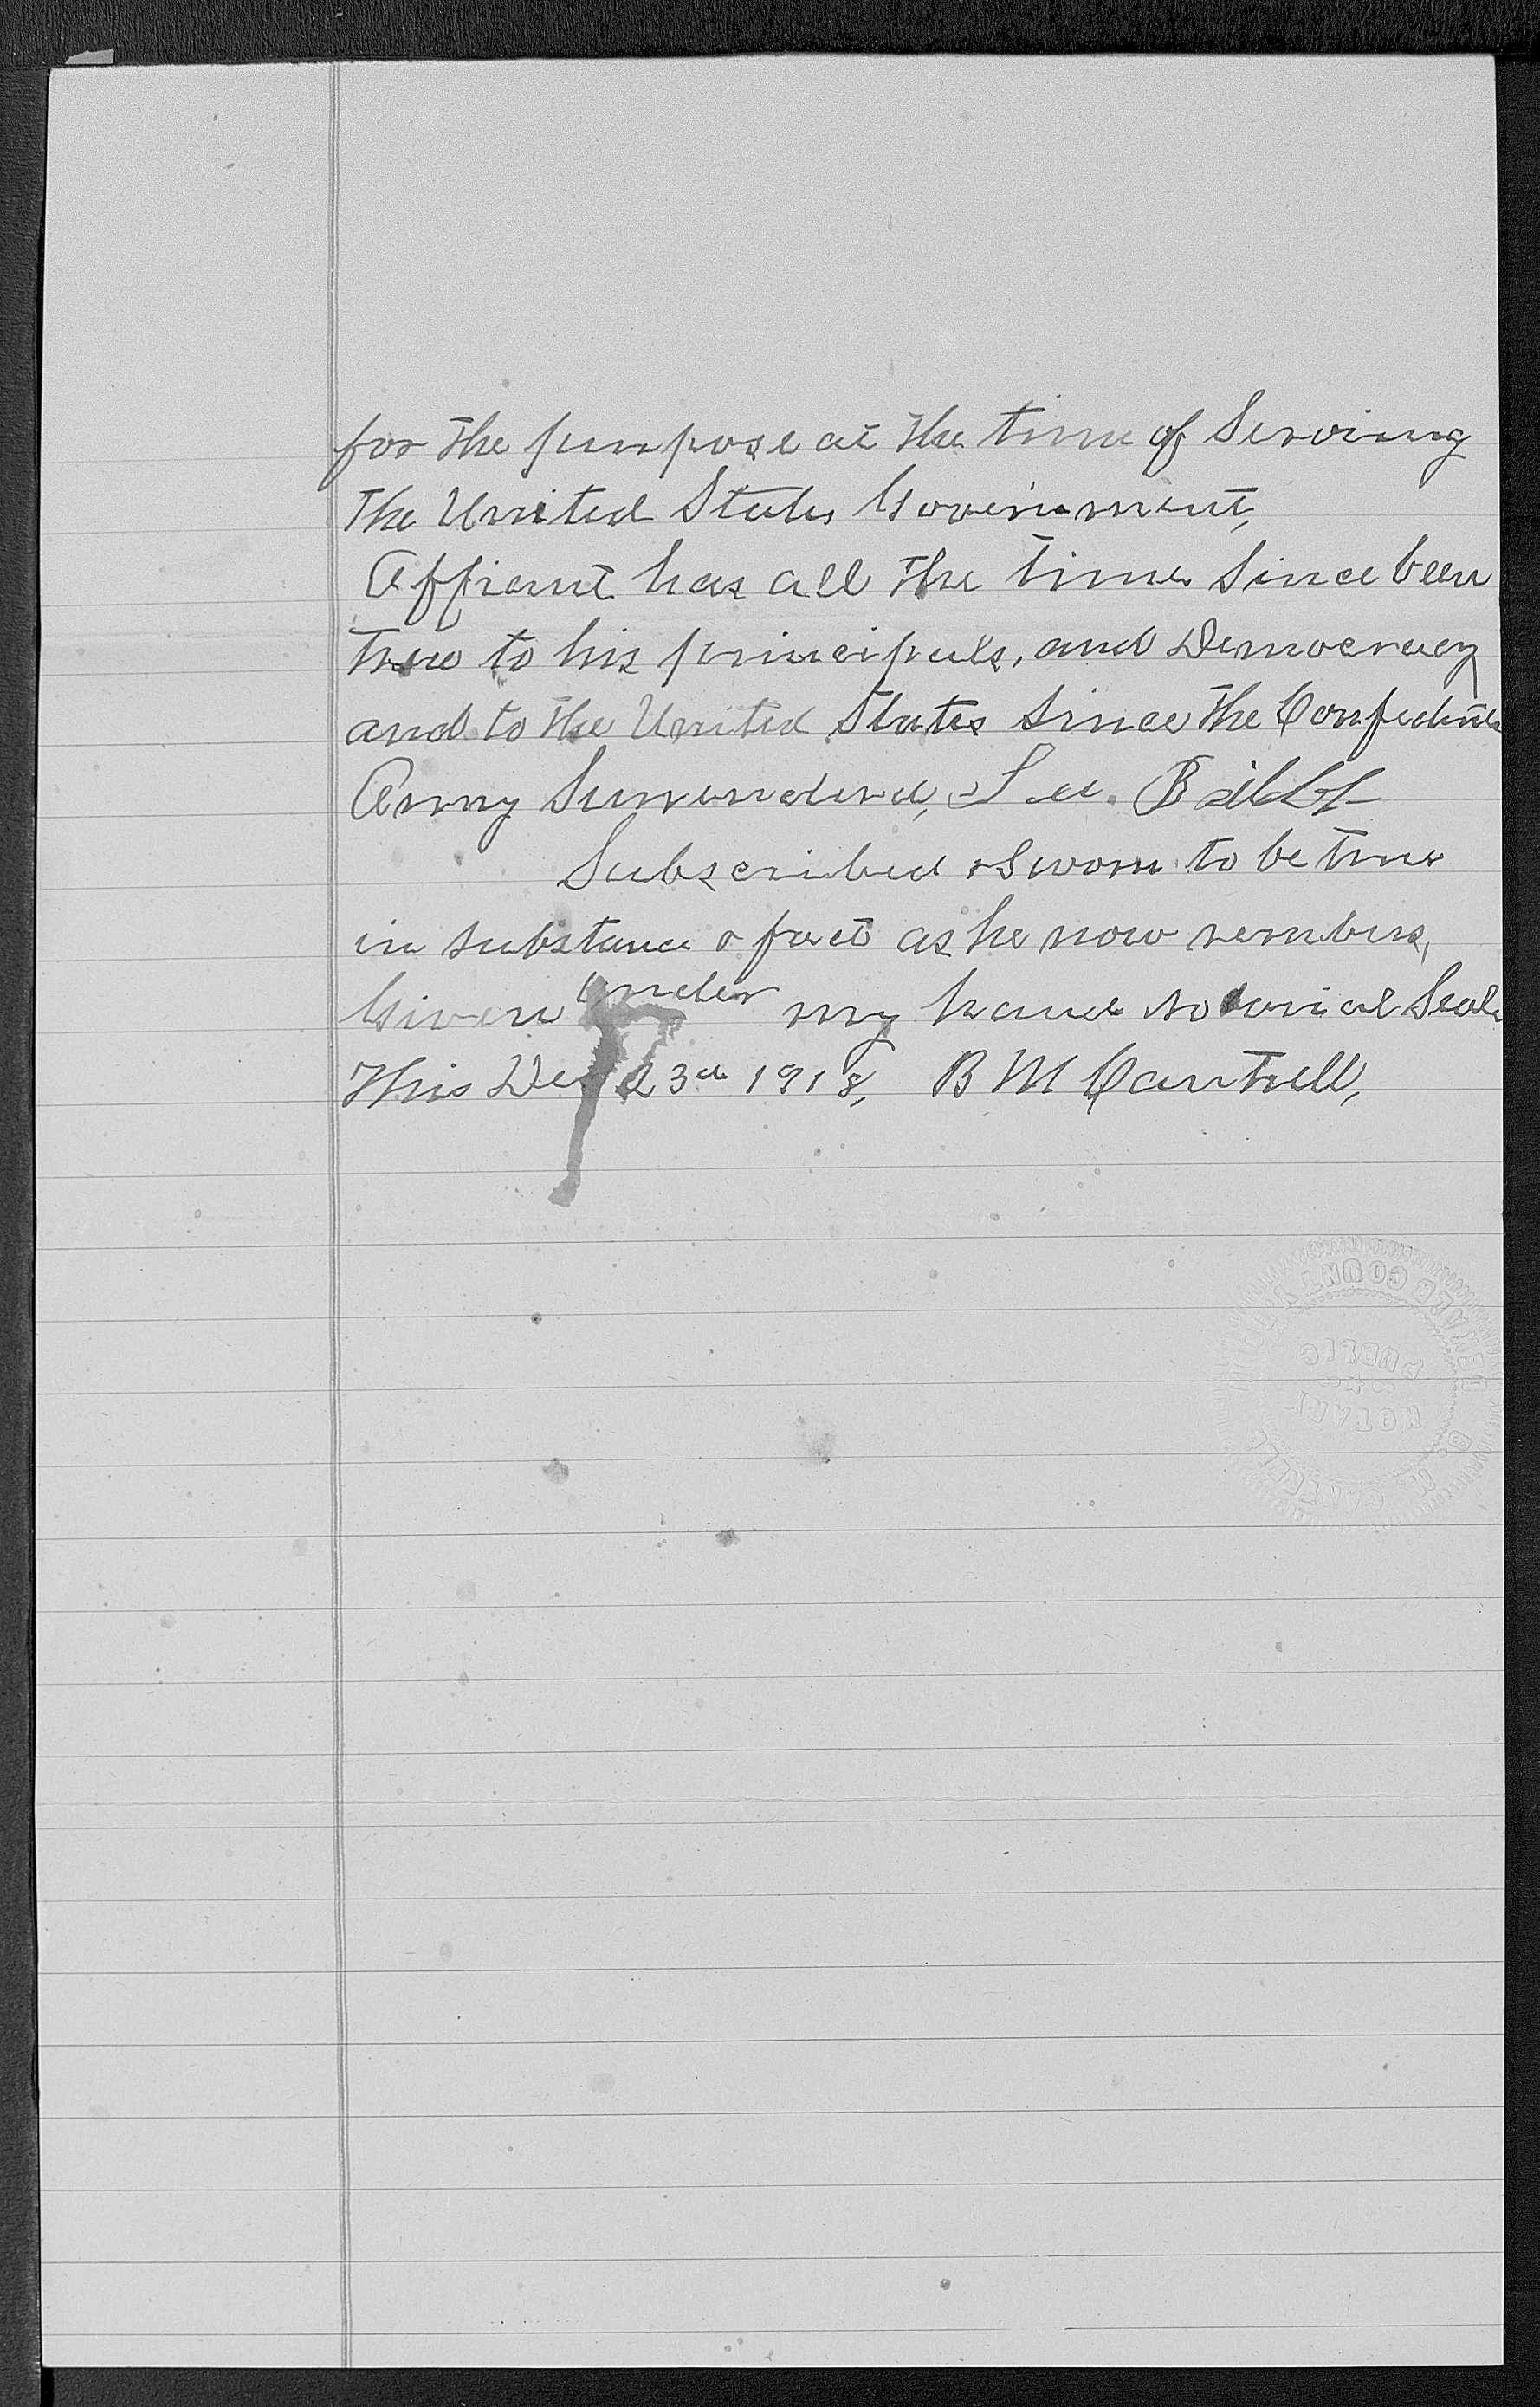 for the purpose at the time of Serving
the United States Government,
Affiant has all the time since been
true to his principals, and Democracy
and to the United States since the Confederate
Army Surrendered,
Subscribed & Sworn to be true
in substance & fact as he now rembers,
Given under my hand notarial Seal
This Dec 23d 1918, B M Cantrell,
DEKALB COUNTY
NOTARY
PUBLIC
B. M. CANTRELL